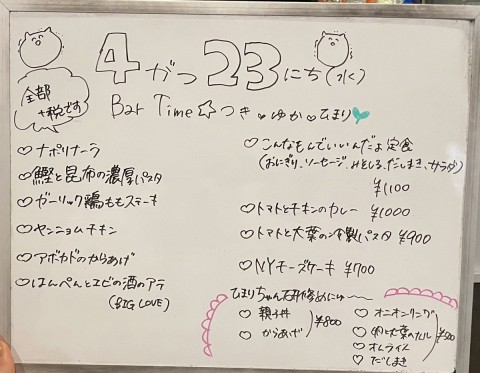 4がつ23にち(水)
全部
+税です
Bar Time☆つき♥ゆか♥ひまり♥
♡ナポリナーラ
♡鰹と昆布の濃厚パスタ
♡ガーリック鶏ももステーキ
♡ヤンニョムチキン
♡アボカドのからあげ
♡はんぺんとエビの酒のアテ
(BIG LOVE)
♡こんなもんでいいんだよ定食
(おにぎり、ソーセージ、みそしる、だしまき、サラダ)
¥1100
♡トマトとチキンのカレー ¥1000
♡トマトと大葉の冷製パスタ ¥900
♡NYチーズケーキ ¥700
ひまりちゃん研修めにゅ〜〜
♡親子丼
♡からあげ
¥800
♡オニオンリング
♡大葉の
♡オムライス
♡だしまき
¥500